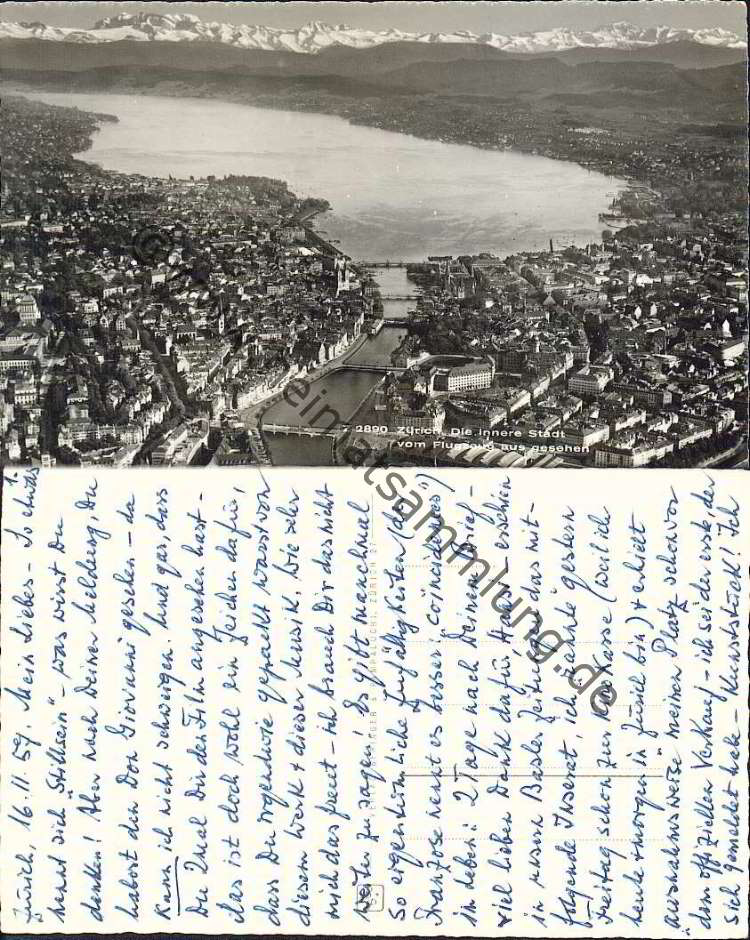 2890 Zürich. Die innere Stadt
vom Flugzeug aus gesehen
heimatsammlung.de
Zürich, 16.11.59. Mein Liebes – So etwas
nennt sich "Stillsein" – was wirst Du
denken! Aber nach Deiner Meldung, Du
habest den Don Giovanni gesehen – da
kann ich nicht schweigen. Und gar, dass
Du 2mal Dir den Film angesehen hast –
das ist doch wohl ein Zeichen dafür,
dass Du irgendwie gepackt warst von
diesem Werk + dieser Musik. Wie sehr
mich das freut – ich brauch Dir das nicht
weiter zu sagen! Es gibt manchmal
so eigentümliche Zufälligkeiten (der
Franzose nennt es besser: "coincidences")
im Leben: 2 Tage nach Deinem Brief –
viel lieben Dank dafür Hada – erschien
in unsrer Basler Zeitung das mit-
folgende Inserat, ich rannte gestern
Freitag schon zur Kino Kasse (weil ich
heute + morgen in Zürich bin) + erhielt
"ausnahmsweise" meinen Platz schon vor
dem offiziellen Verkauf – ich sei der erste der
sich gemeldet habe – Kunststück! Ich